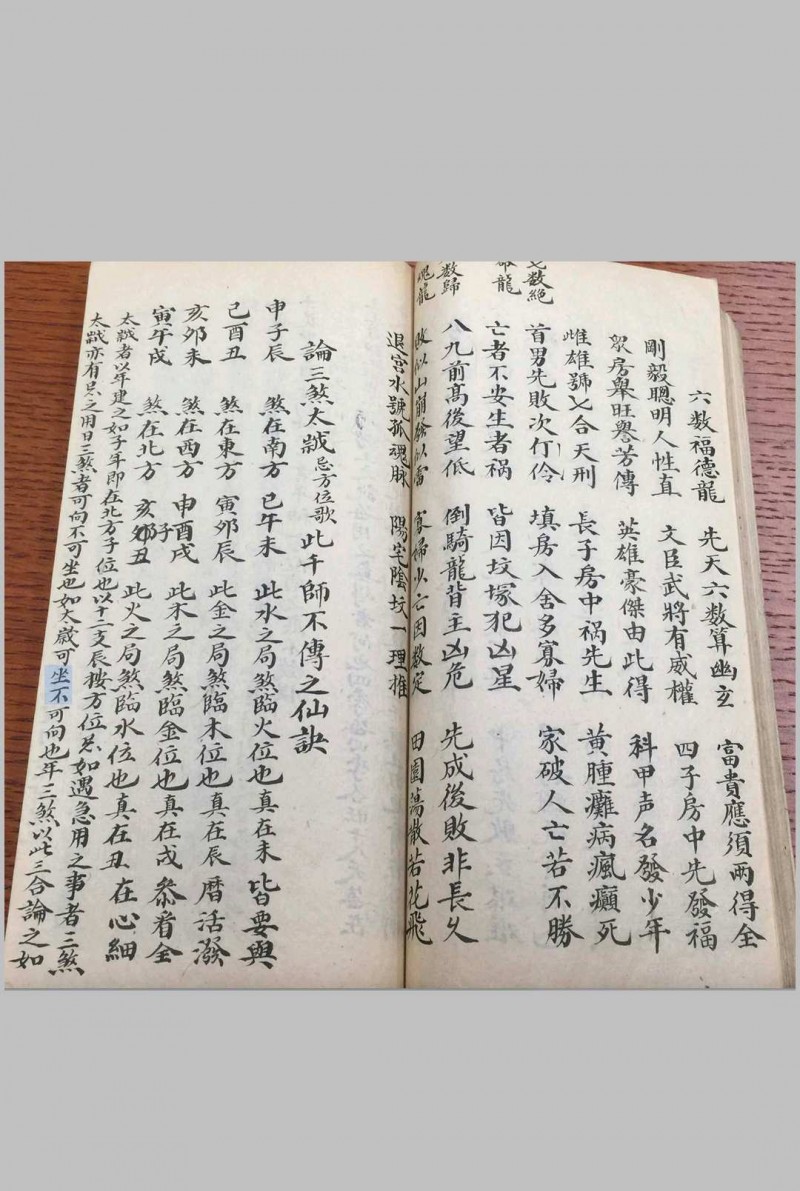 六数福德龍 先天六数算幽玄 富貴應須兩得全
剛毅聰明人性直 文臣武將有威權 四子房中先發福
眾房舉旺譽芳傳 英雄豪傑由此得 科甲声名發少年
七数絶
命龍
雌雄號七合天刑 長子房中禍先生 黄腫癱病瘋癲死
首男先敗次仃伶 填房入舍多寡婦 家破人亡若不勝
亡者不安生者禍 皆因坟塚犯凶星
数歸
魂龍
八九前高後望低 倒騎龍背主凶危 先成後敗非長乆
敗似山崩 寡婦少亡因数定 田園蕩散若花飛
退宫水號孤魂脉 陽宅陰坟一理推
論三煞太歲忌方位歌 此千師不傳之仙訣
申子辰 煞在南方 巳午未 此水之局煞臨火位也真在未 皆要與
巳酉丑 煞在東方 寅夘辰 此金之局煞臨木位也真在辰 曆活潑
亥夘未 煞在西方 申酉戌 此木之局煞臨金位也真在戌 叅看全
寅午戌 煞在北方 亥子丑 此火之局煞臨水位也真在丑 在心細
太歲者以年建之如子年即在北方子位也以十二支辰按方位忌如遇急用之事者三煞
太歲亦有忌之用日三煞者可向不可坐也如太歲可坐不可向也年三煞以此三合論之如